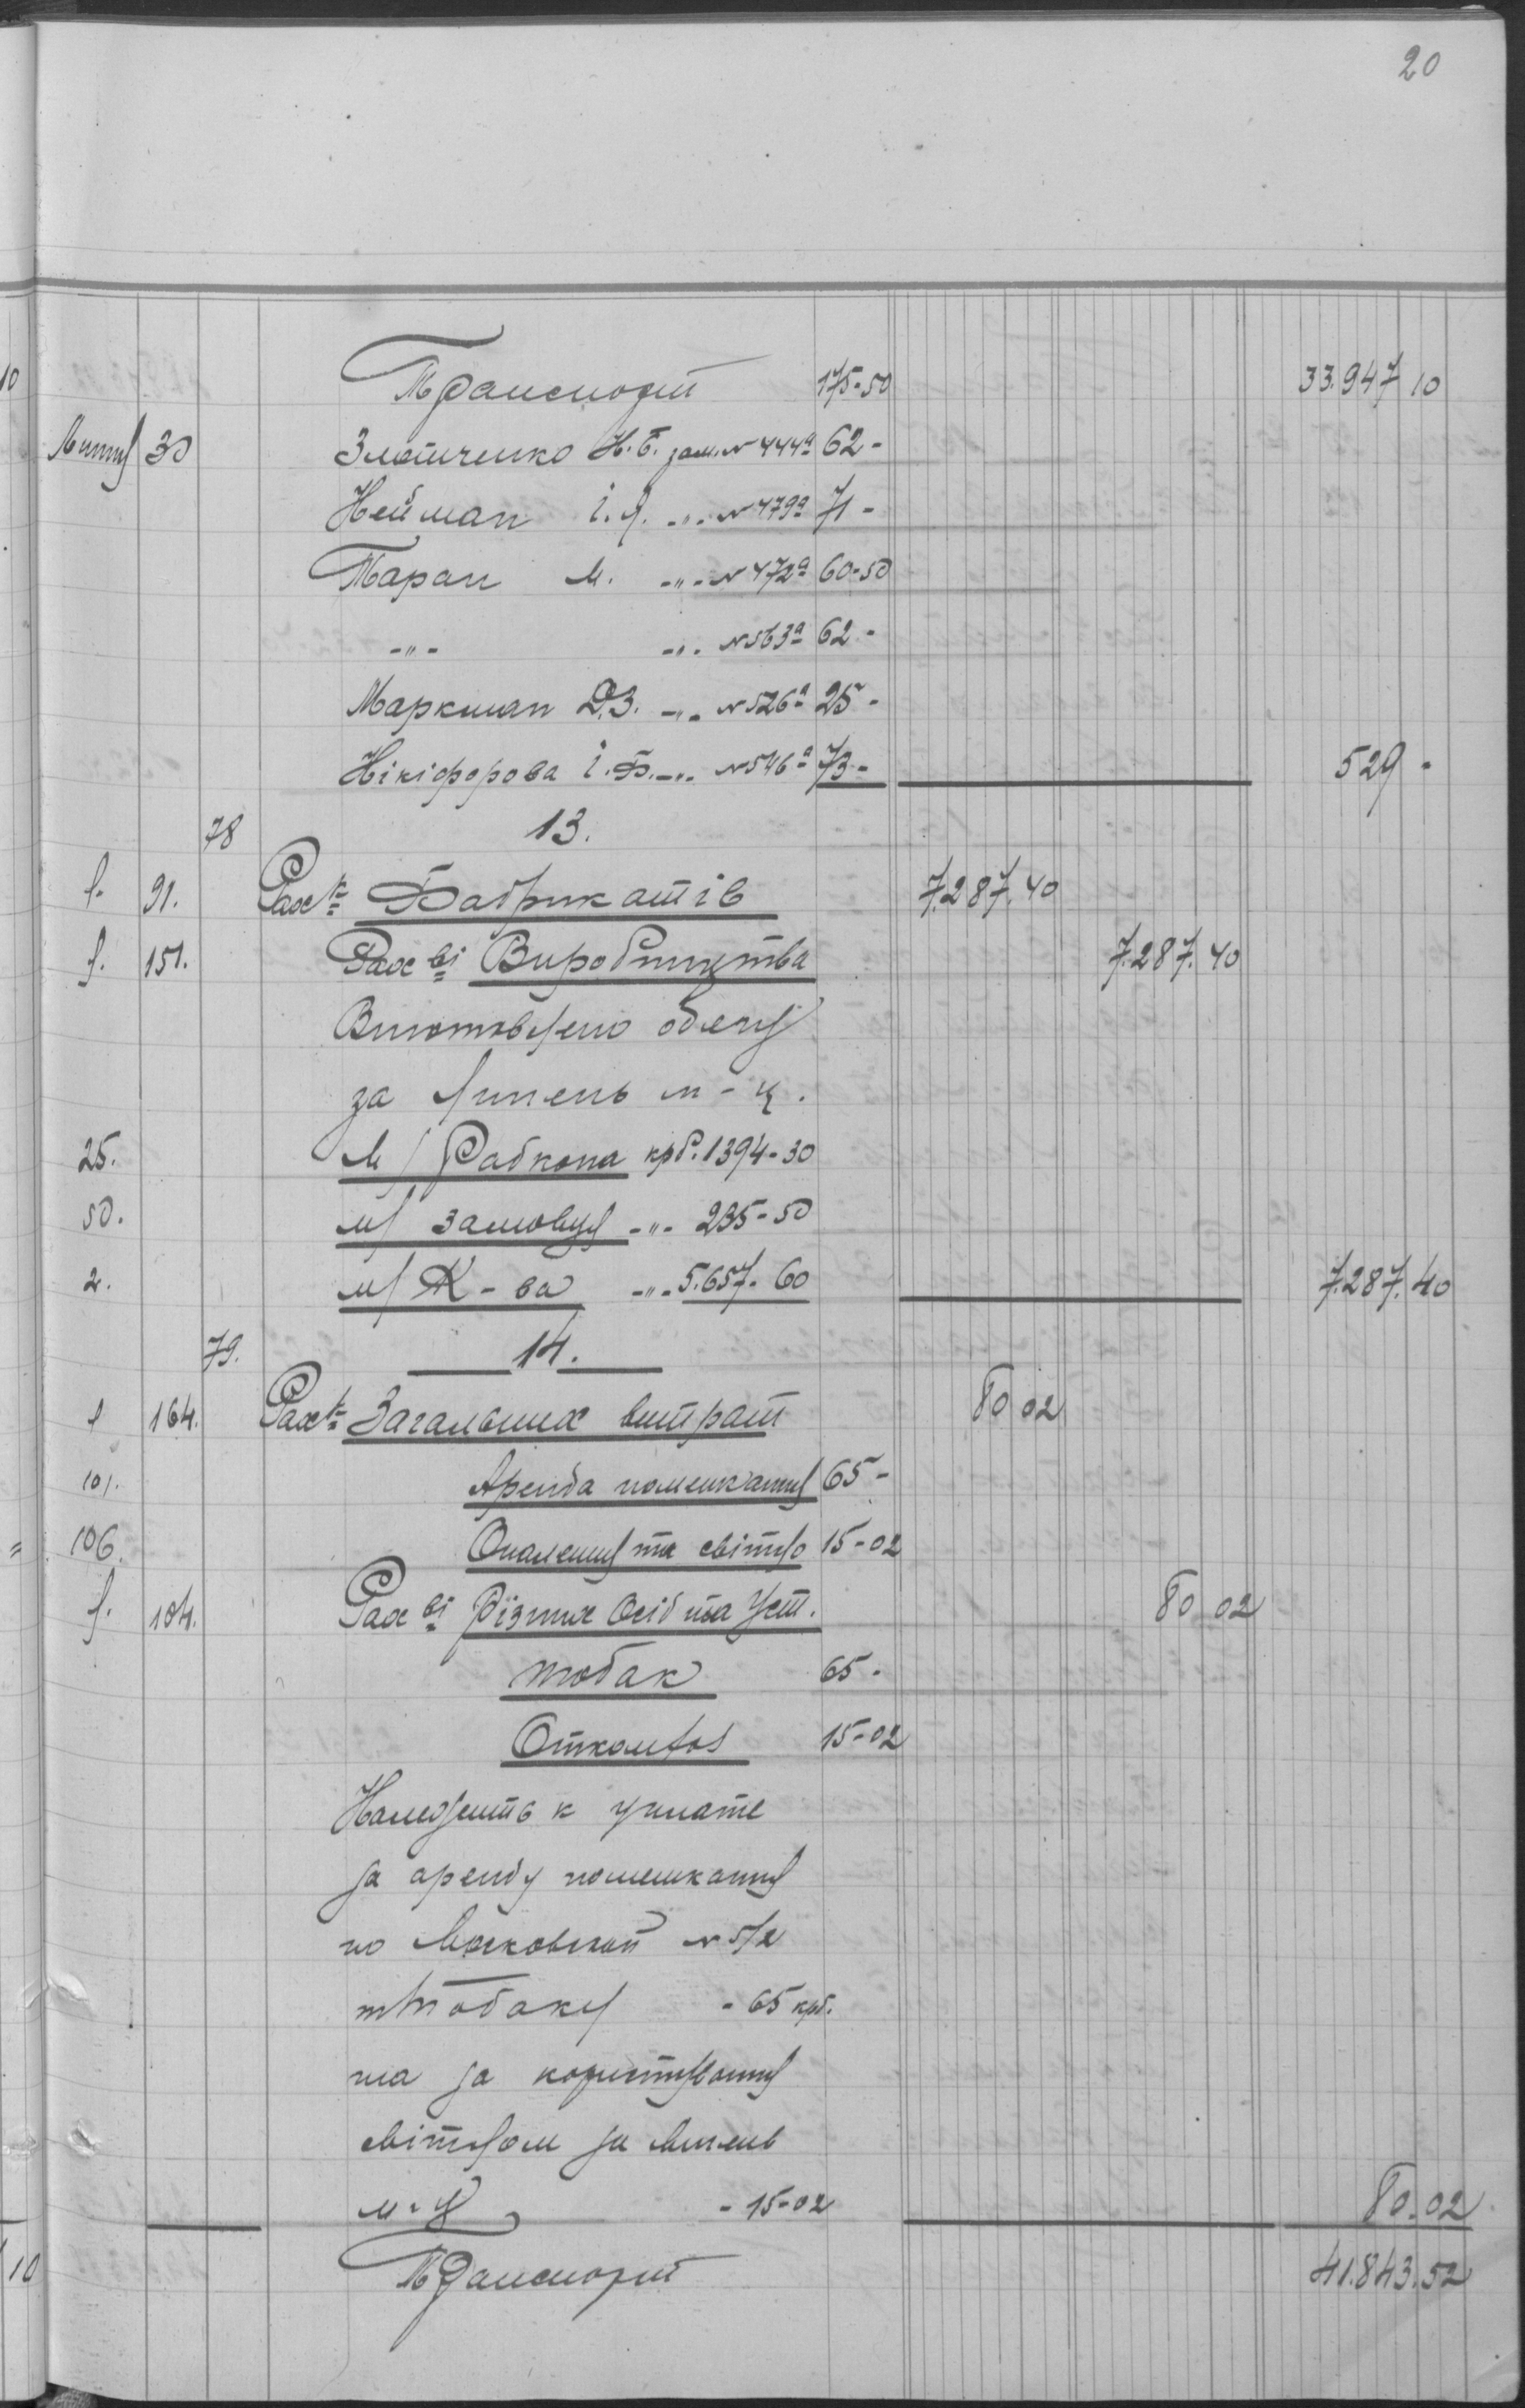 20
Транспорт 175-50 33.947 10
Липня 30 Злотченко Н.Б. зам. № 444а 62-
Нейман І.Я. -"- № 479а 71-
Таран М. -"- № 472а 60-50
-"- -"- № 563а 62-
Маркман Д.З. -"- № 526а 25-
Нікіфорова І.Ф. -"- № 546а 73- 529-
78 13.
л. 91. Рах-к Фабрикатів 7.287.40
л. 151. Рах-ві Виробництва 7.287.40
Виготовлено
за липень м-ц.
25. м/ Рабкопа крб. 1394-30
50. м/ замовця -"- 235-50
2. м/ К-ва -"- 5.657-60 7.287.40
79. 14.
л 164. Рах-к Загальних витрат 80 02
101. Аренда помешкання 65-
106. Опалення та світло 15-02
л. 104. Рах-ві Різних Осіб та Уст. 80 02
65-
15-02
Належить к уплате
за аренду помешкання
по Московской № 5/2
- 65 крб.
та за користування
світлом за липень
м-ц - 15-02 80.02
Транспорт 41.843.52
10
10